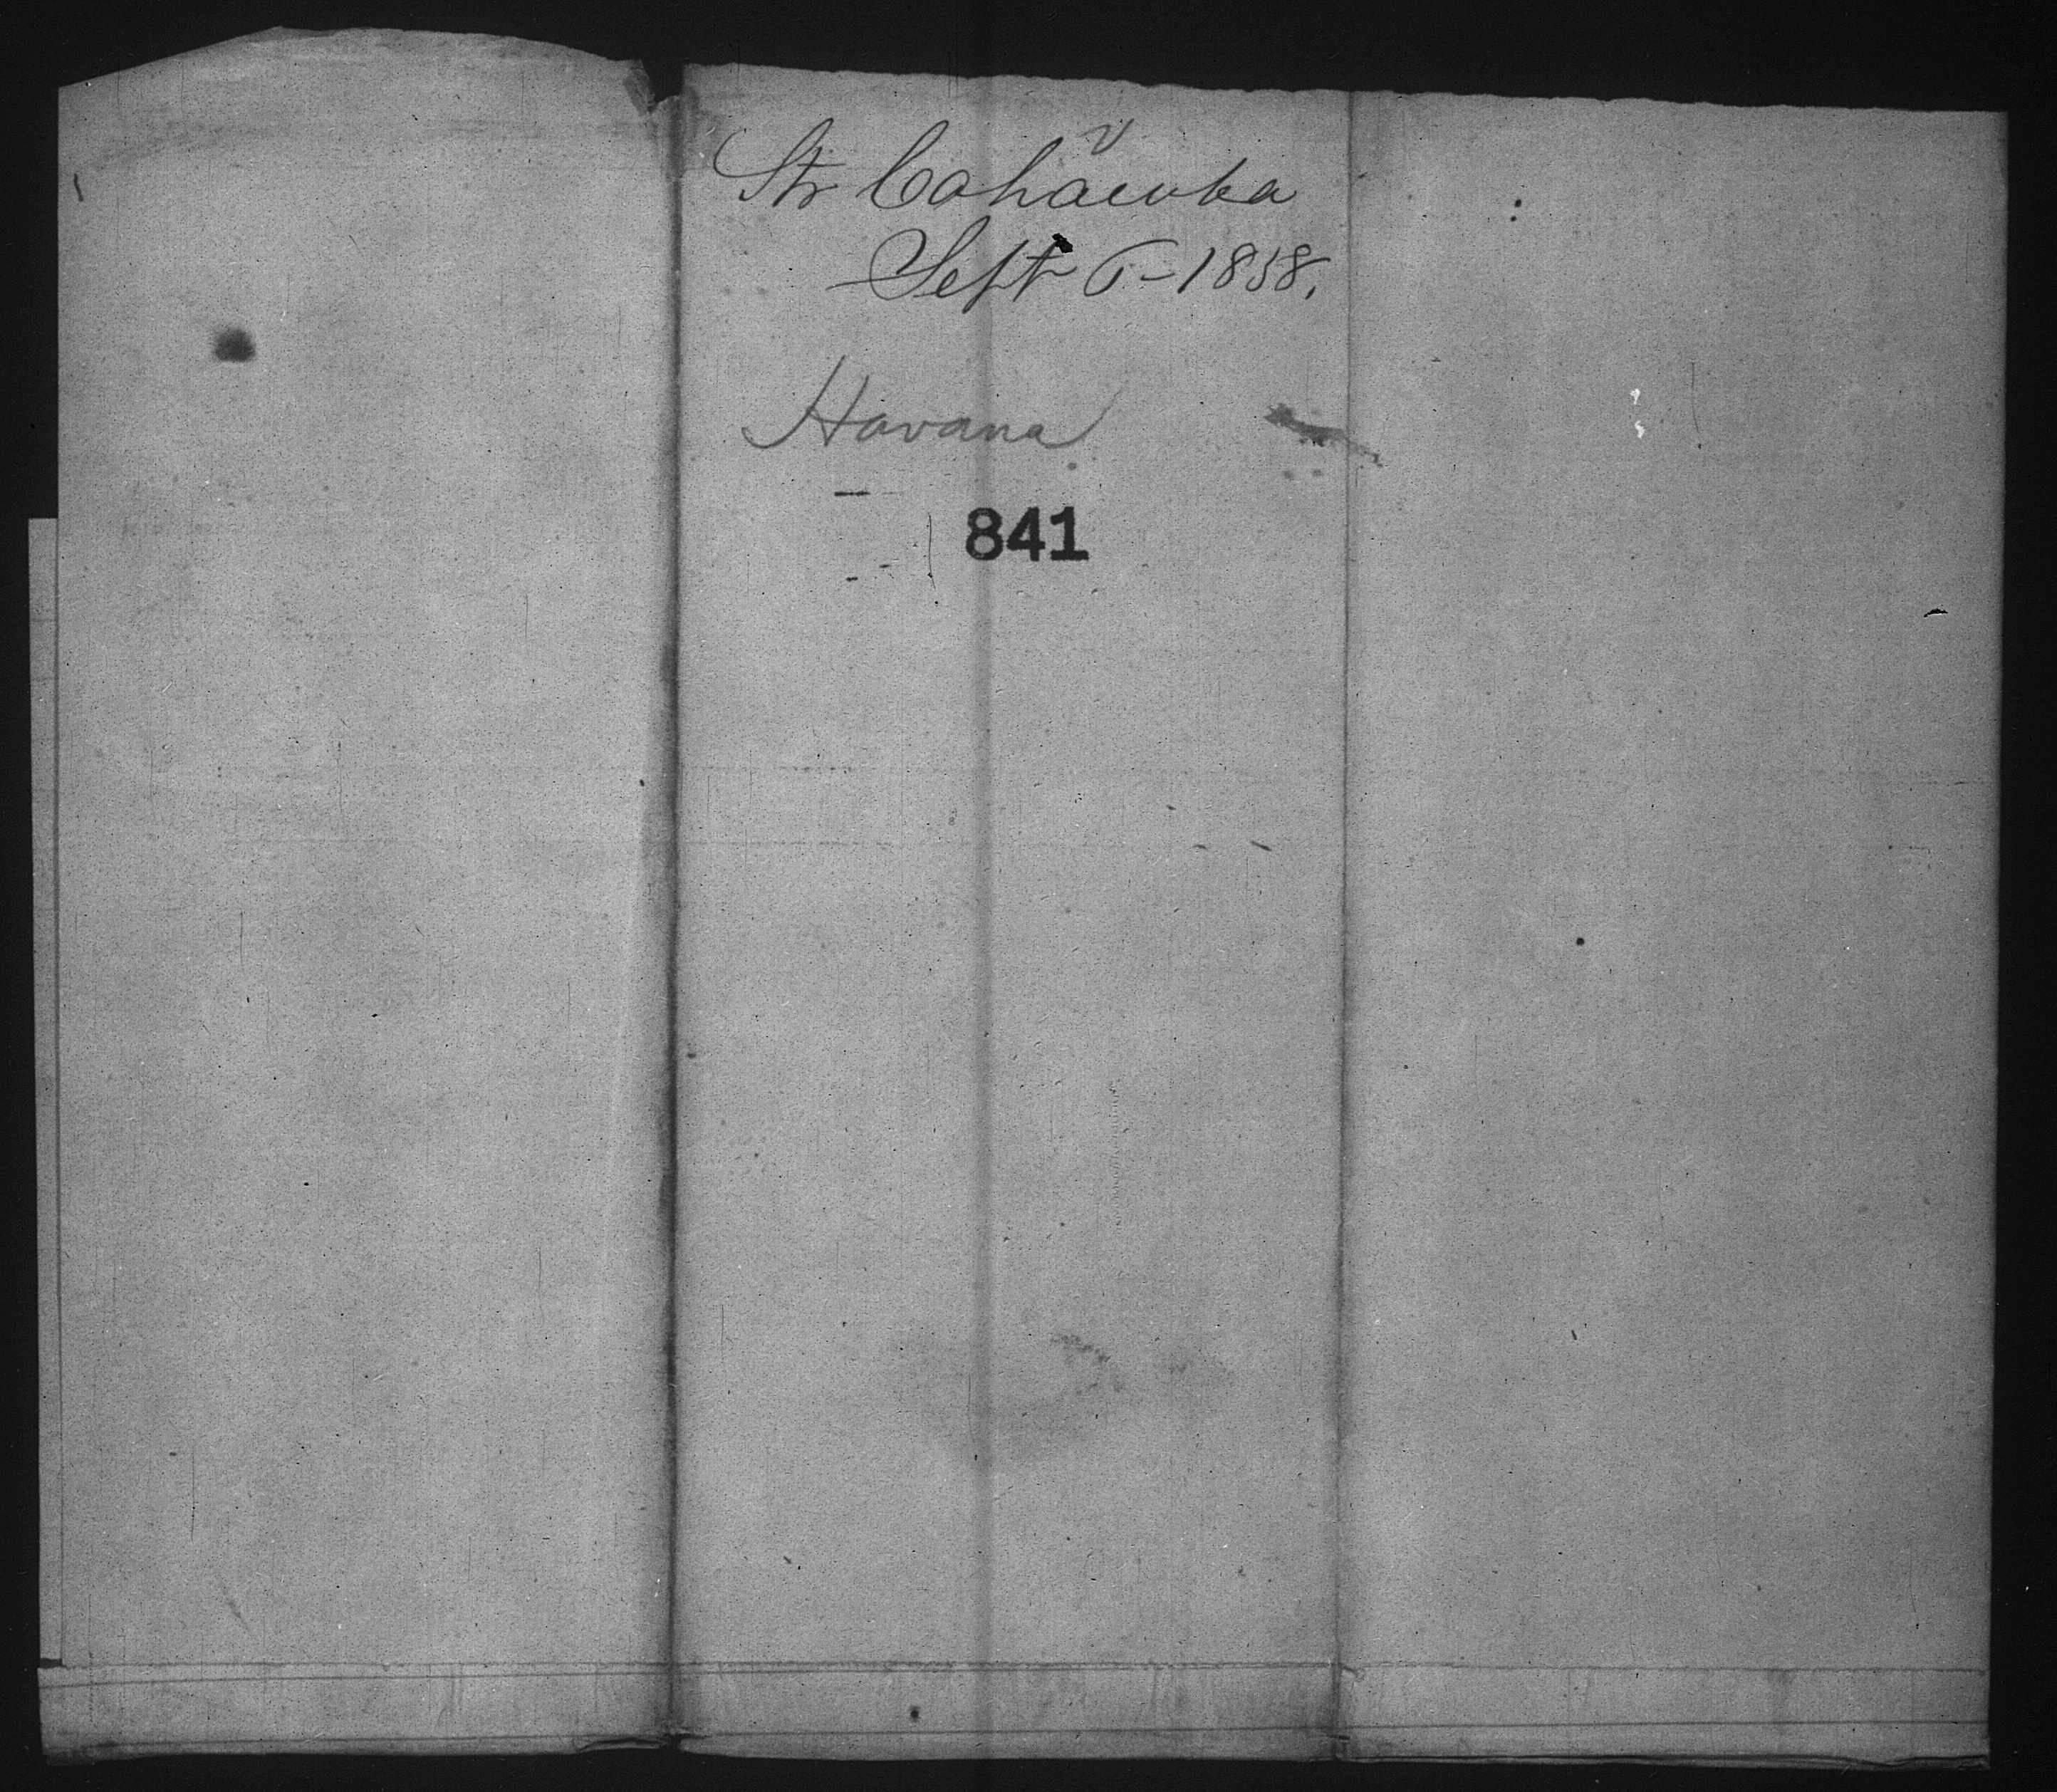 Str Cahawba
Sept 6-1858.
Havana
841